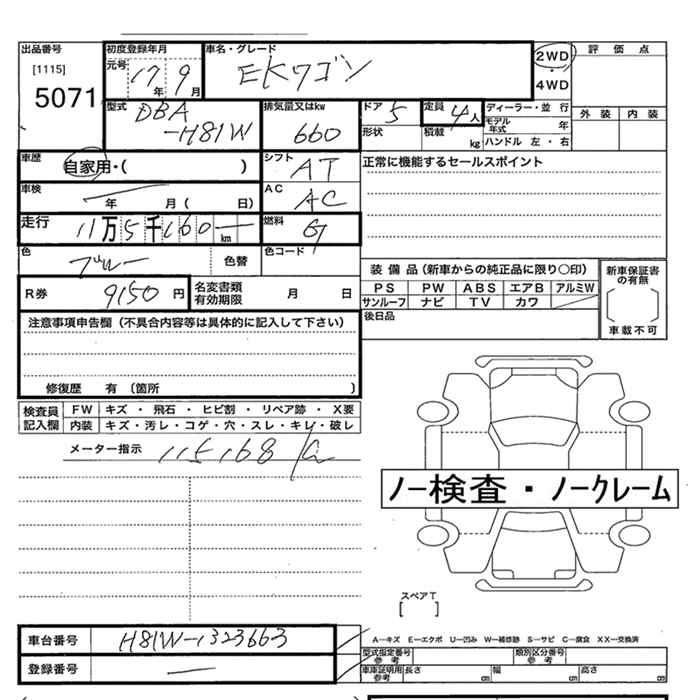 出品番号 初度登録年月 車名・グレード 評価点
[1115] 元号 17年 9月 EKワゴン 2WD・4WD
5071
型式 排気量又はkw ドア 定員 ディーラー・並行 外装 内装
DBA-H81W 660 5 4人 モデル年式 年
形状 積載 kg ハンドル 左・右
車歴 自家用・( ) シフト AT 正常に機能するセールスポイント
車検 年 月( 日) AC AC
走行 11万5千160 km 燃料 G
色 ブルー 色替 色コード
装備品(新車からの純正品に限り○印) 新車保証書の有無
R券 9150円 名変書類有効期限 月 日 PS PW ABS エアB アルミW
サンルーフ ナビ TV カワ
車載不可
注意事項申告欄(不具合内容等は具体的に記入して下さい) 後日品
修復歴 有 (箇所 )
検査員記入欄 FW キズ・飛石・ヒビ割・リペア跡・X要
内装 キズ・汚レ・コゲ・穴・スレ・キレ・破レ
メーター指示 115168
ノー検査・ノークレーム
スペアT
[ ]
車台番号 H81W-1323663
A-キズ E-エクボ U-凹み W-補修跡 S-サビ C-腐食 XX-交換済
登録番号 —
型式指定番号 参考 類別区分番号 参考
車庫証明用 参考 長さ cm 幅 cm 高さ cm